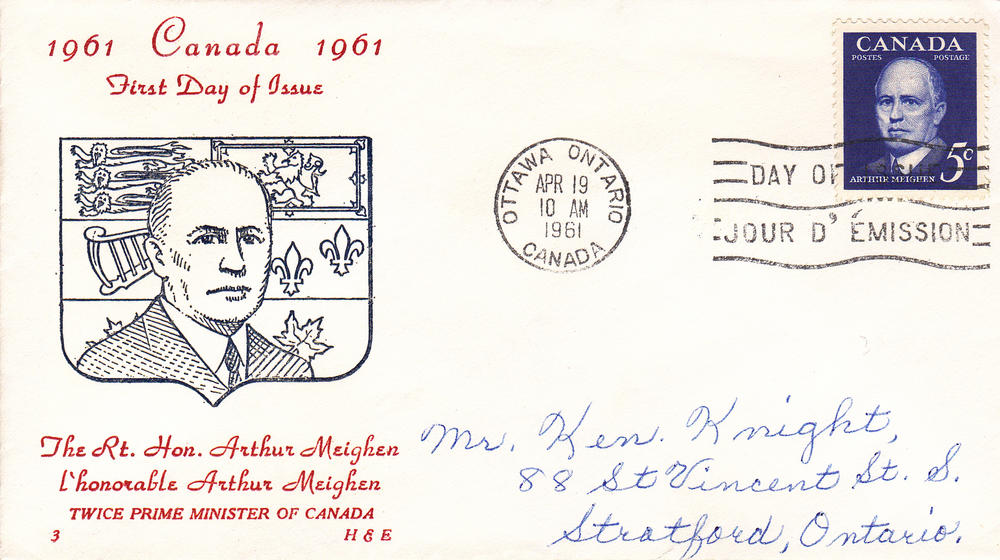 1961 Canada 1961
First Day of Issue
The Rt. Hon. Arthur Meighen
l'honorable Arthur Meighen
TWICE PRIME MINISTER OF CANADA
3 H & E
OTTAWA ONTARIO
APR 19
10 AM
1961
CANADA
CANADA
POSTES POSTAGE
ARTHUR MEIGHEN 5c
DAY OF
JOUR D'ÉMISSION
Mr. Ken. Knight,
88 St Vincent St. S.
Stratford, Ontario.